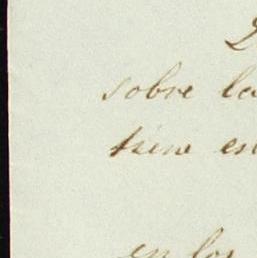 sobre la
tiene en
en los